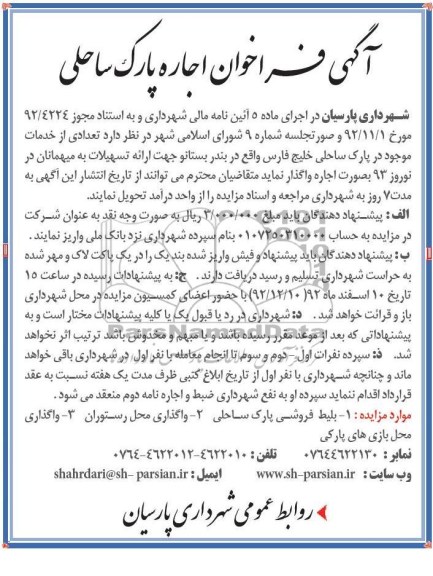 آگهی فراخوان اجاره پارک ساحلی
شهرداری پارسیان در اجرای ماده ۵ آئین نامه مالی شهرداری و به استناد مجوز ۹۲/۴۲۲۴
مورخ ۹۲/۱۱/۱ و صورتجلسه شماره ۹ شورای اسلامی شهر در نظر دارد تعدادی از خدمات
موجود در پارک ساحلی خلیج فارس واقع در بندر بستانو جهت ارائه تسهیلات به میهمانان در
نوروز ۹۳ بصورت اجاره واگذار نماید متقاضیان محترم می توانند از تاریخ انتشار این آگهی به
مدت۷ روز به شهرداری مراجعه و اسناد مزایده را از واحد درآمد تحویل نمایند.
الف: پیشنهاد دهندگان باید مبلغ ۳/۰۰۰/۰۰۰ ریال به صورت وجه نقد به عنوان شرکت
در مزایده به حساب ۰۱۰۷۳۵۰۳۱۰۰۰۰ بنام سپرده شهرداری نزد بانک ملی واریز نمایند.
ب: پیشنهاد دهندگان باید پیشنهاد و فیش واریز شده بند یک را در یک پاکت لاک و مهر شده
به حراست شهرداری تسلیم و رسید دریافت دارند. ج: به پیشنهادات رسیده در ساعت ۱۵
تاریخ ۱۰ اسفند ماه ۹۲ (۹۲/۱۲/۱۰) با حضور اعضای کمسیون مزایده در محل شهرداری
باز و قرائت خواهد شد. د: شهرداری در رد یا قبول یک یا کلیه پیشنهادات مختار است و به
پیشنهاداتی که بعد از موعد مقرر رسیده باشد و یا مبهم و مخدوش باشد ترتیب اثر نخواهد
شد. ذ: سپرده نفرات اول - دوم و سوم تا انجام معامله با نفر اول در شهرداری باقی خواهد
ماند و چنانچه شهرداری با نفر اول از تاریخ ابلاغ کتبی ظرف مدت یک هفته نسبت به عقد
قرارداد اقدام ننماید سپرده او به نفع شهرداری ضبط و اجاره نامه دوم منعقد می شود.
موارد مزایده : ۱- بلیط فروشی پارک ساحلی ۲- واگذاری محل رستوران ۳- واگذاری
محل بازی های پارکی
نمابر : ۰۷۶۴۴۶۲۲۱۳۰ تلفن : ۴۶۲۲۰۱۰-۴۶۲۲۰۱۲-۰۷۶۴
وب سایت : www.sh-parsian.ir ایمیل : shahrdari@sh- parsian.ir
روابط عمومی شهرداری پارسیان